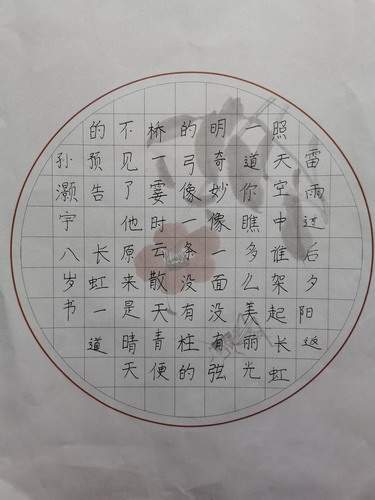 雷雨过后夕阳返
照天空中谁架起长虹
一道你瞧多么美丽光
明奇妙像一面没有弦
的弓像一条没有柱的
桥一霎时云散天青便
不见了他原来是晴天
的预告 长虹一道
孙灏宇八岁书